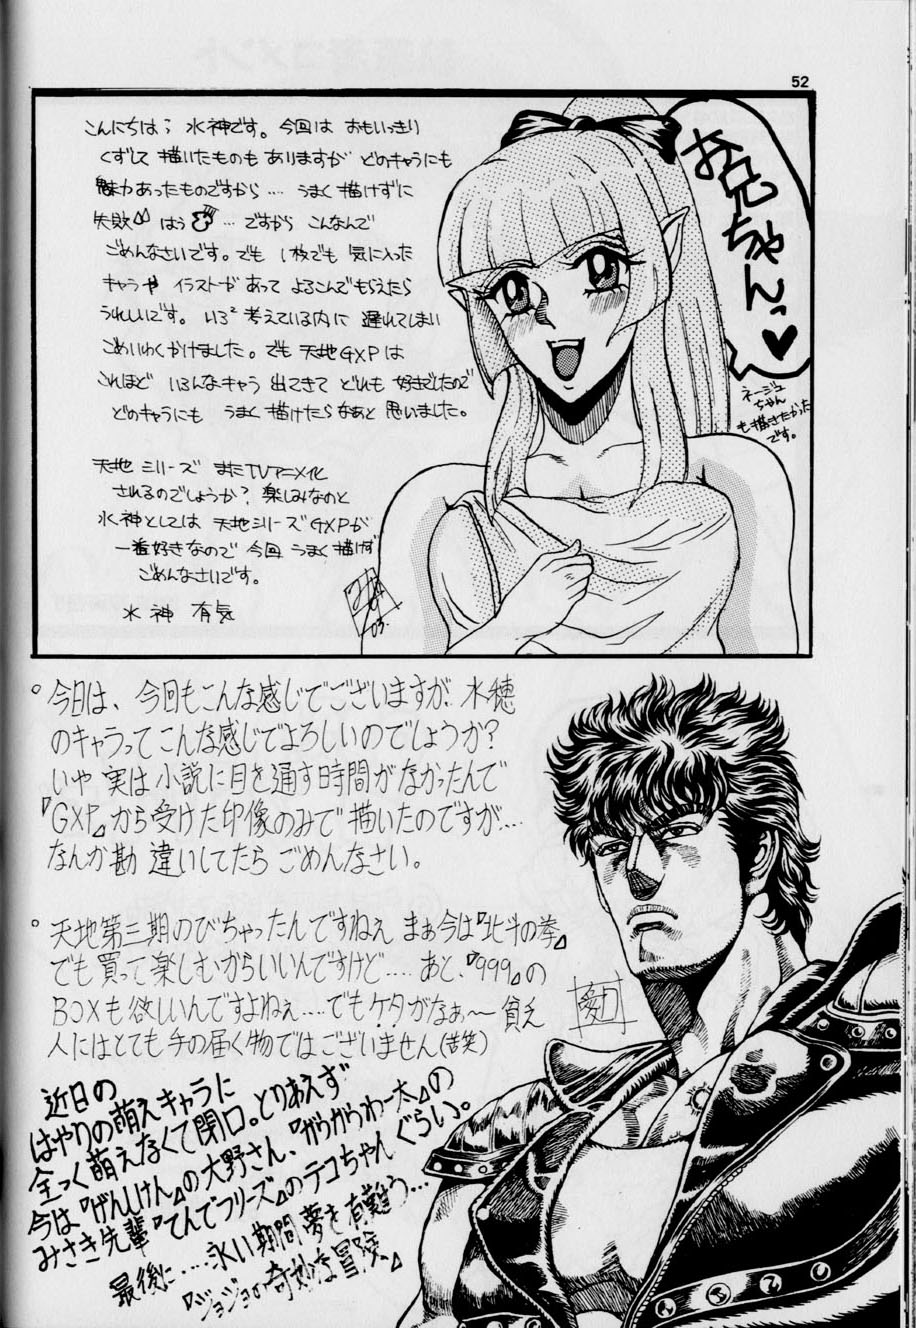 52
こんにちは、水神です。今回は おもいっきり
くずして 描いたものも ありますが どのキャラにも
魅力あったものですから…. うまく 描けずに
失敗 はう …ですから こんなんで
ごめんなさいです。でも 1枚でも 気に入った
キャラや イラストが あって よろこんでもらえたら
うれしいです。いろ² 考えている内に 遅れてしまい
ごめいわくかけました。でも 天地GXPは
これほど いろんなキャラ 出てきて どれも 好きでしたので
どのキャラにも うまく 描けたら なあと 思いました。
天地シリーズ また TVアニメ化
されるのでしょうか? 楽しみなのと
水神としては 天地シリーズ GXPが
一番好きなので 今回 うまく 描けず
ごめんなさいです。
水 神 有気
お兄ちゃんっ♥
ネージュ
ちゃん
も描きたかった
です。
。今日は、今回もこんな感じでございますが、水穂
のキャラってこんな感じでよろしいのでしょうか?
いや 実は小説に目を通す時間がなかったんで
『GXP』から受けた印像のみで描いたのですが….
なんか勘違いしてたら ごめんなさい。
。天地第三期のびちゃったんですねえ まぁ今は『北斗の拳』
でも買って楽しむからいいんですけど…. あと、『999』の
BOXも欲しいんですよねえ….でもケタがなぁ〜 貧乏
人にはとても手の届く物ではございません(苦笑)
近日の
はやりの萌えキャラに
全っく萌えなくて閉口。とりあえず
今は『げんしけん』の大野さん、『がうがうわー太』の
みさき先輩『てんでフリーズ』のテコちゃんぐらい。
最後に….永い期間夢を有難う…
『ジョジョの奇妙な冒険』